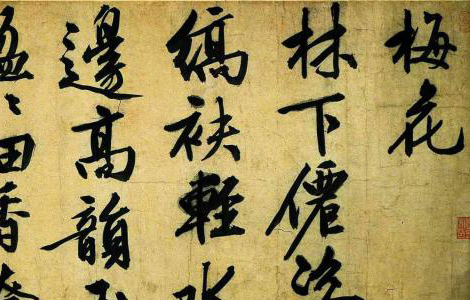 梅花
林下僊姿
縞袂輕水
邊高韻玉
盈〻
香